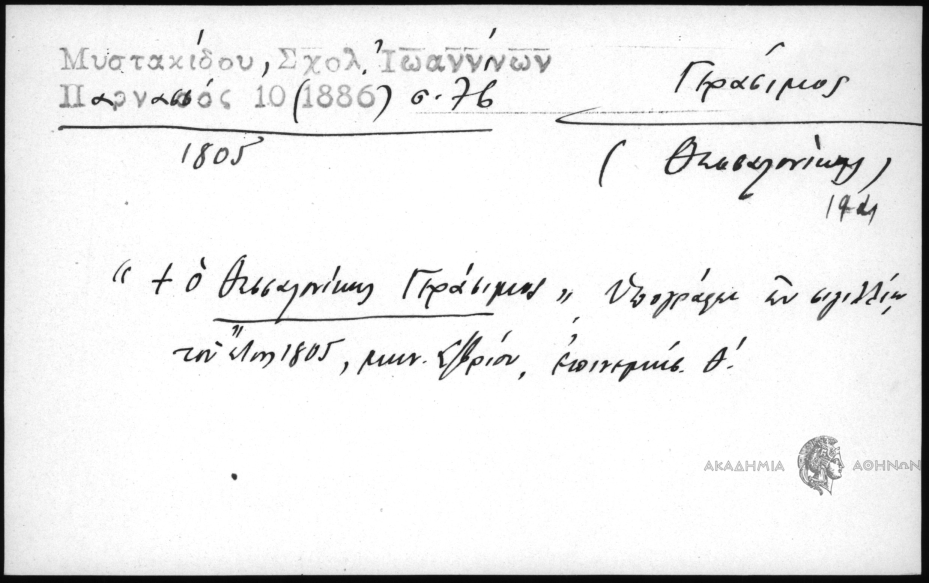 Μυστακίδου, Σχολ. Ἰωαννίνων
Παρνασσός 10 (1886) σ. 76
1805
Γεράσιμος
(Θεσσαλονίκης)
"+ ὁ Θεσσαλονίκης Γεράσιμος", ὑπογράφει ἐν σιγιλλίῳ
τοῦ ἔτους 1805, μην. Σ/βρίου, ἐπινεμήσ. θ΄.
ΑΚΑΔΗΜΙΑ ΑΘΗΝΩΝ